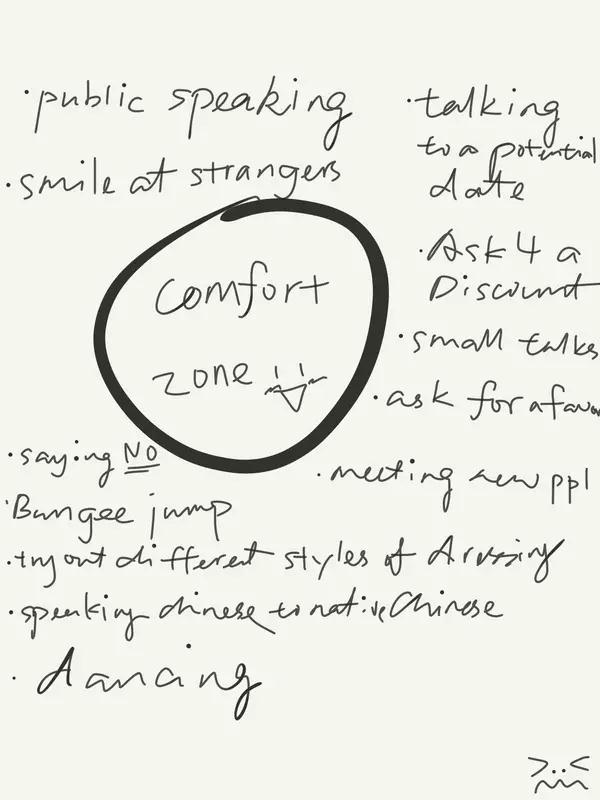 • public speaking
• smile at strangers
• talking
to a potential
date
• Ask 4 a
Discount
• small talks
• ask for a favor
comfort
zone
• saying NO
• meeting new ppl
• Bungee jump
• try out different styles of dressing
• speaking chinese to native Chinese
• dancing